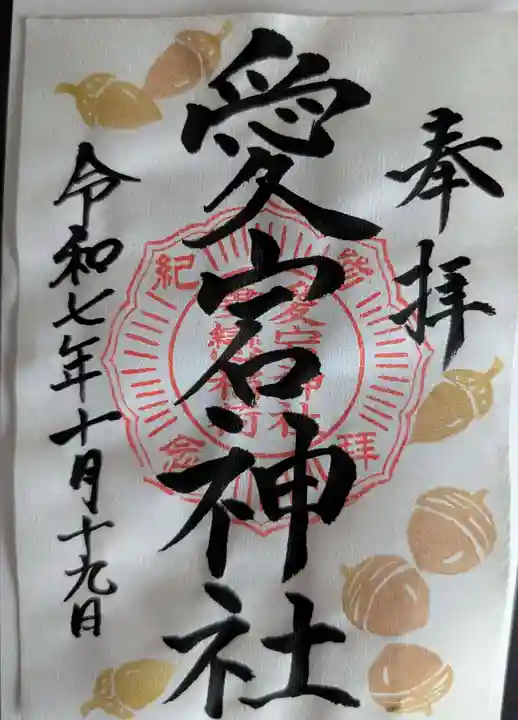 奉拝
愛宕神社
令和七年十月十九日
参拝
紀念
愛宕神社
稲荷